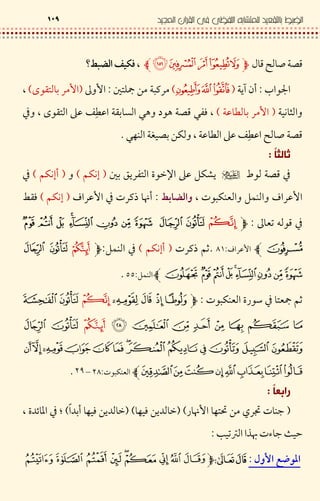 الضبط بالتقعيد للمتشابه اللفظي في القرآن المجيد ١٠٩
قصة صالح قال ﴿ وَلَا تُطِيعُوا أَمْرَ الْمُسْرِفِينَ ١٥١ ﴾ ، فكيف الضبط؟
الجواب : أن آية ( فَاتَّقُوا اللَّهَ وَأَطِيعُونِ ) مركبة من جملتين : الأولى (الأمر بالتقوى) ،
والثانية ( الأمر بالطاعة ) ، ففي قصة هود وهي السابقة اعطِف على التقوى ، وفي
قصة صالح اعطِف على الطاعة ، ولكن بصيغة النهي .
ثالثاً :
في قصة لوط يشكل على الإخوة التفريق بين ( إنكم ) و ( أإنكم ) في
الأعراف والنمل والعنكبوت ، والضابط : أنها ذكرت في الأعراف ( إنكم ) فقط
في قوله تعالى : ﴿ إِنَّكُمْ لَتَأْتُونَ الرِّجَالَ شَهْوَةً مِّن دُونِ النِّسَاءِ بَلْ أَنتُمْ قَوْمٌ
مُّسْرِفُونَ ﴾ الأعراف: ٨١ . ثم ذكرت ( أإنكم ) في النمل: ﴿ أَئِنَّكُمْ لَتَأْتُونَ الرِّجَالَ
شَهْوَةً مِّن دُونِ النِّسَاءِ بَلْ أَنتُمْ قَوْمٌ تَجْهَلُونَ ﴾ النمل: ٥٥ .
ثم جمعتا في سورة العنكبوت : ﴿ وَلُوطًا إِذْ قَالَ لِقَوْمِهِ إِنَّكُمْ لَتَأْتُونَ الْفَاحِشَةَ
مَا سَبَقَكُم بِهَا مِنْ أَحَدٍ مِّنَ الْعَالَمِينَ ٢٨ أَئِنَّكُمْ لَتَأْتُونَ الرِّجَالَ
وَتَقْطَعُونَ السَّبِيلَ وَتَأْتُونَ فِي نَادِيكُمُ الْمُنكَرَ فَمَا كَانَ جَوَابَ قَوْمِهِ إِلَّا أَن
قَالُوا ائْتِنَا بِعَذَابِ اللَّهِ إِن كُنتَ مِنَ الصَّادِقِينَ ﴾ العنكبوت: ٢٨ - ٢٩ .
رابعاً :
( جنات تجري من تحتها الأنهار) (خالدين فيها) (خالدين فيها أبداً) ؛ في المائدة ،
حيث جاءت بهذا الترتيب :
الموضع الأول : قال تعالى: ﴿ وَقَالَ اللَّهُ إِنِّي مَعَكُمْ لَئِنْ أَقَمْتُمُ الصَّلَاةَ وَءَاتَيْتُمُ